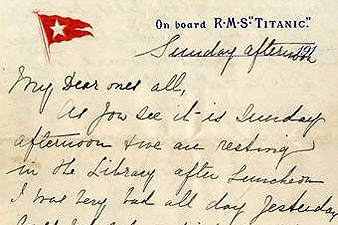 On board R·M·S "TITANIC."
Sunday afternoon 191
My Dear ones all,
As you see it is Sunday
afternoon & we are resting
in the Library after Luncheon
I was very bad all day Yesterday